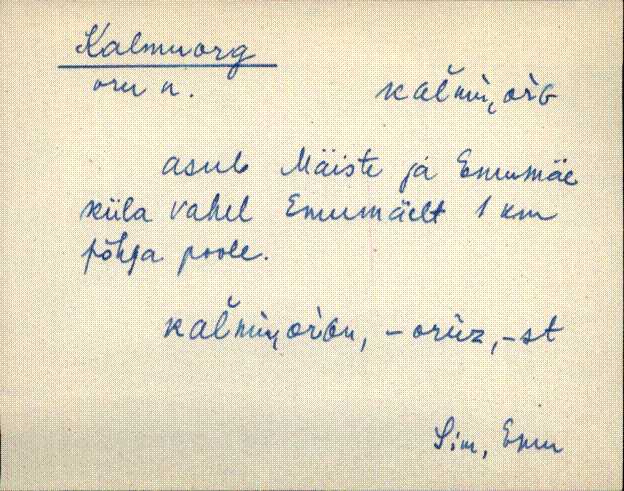 Kalmuorg
oru n. kal̆mu, or̀G
asub Mäiste ja Emumäe
küla vahel Emumäelt 1 km
põhja poole.
kal̆mu, or̀Gu, -orùz, -st
Sim, Emu